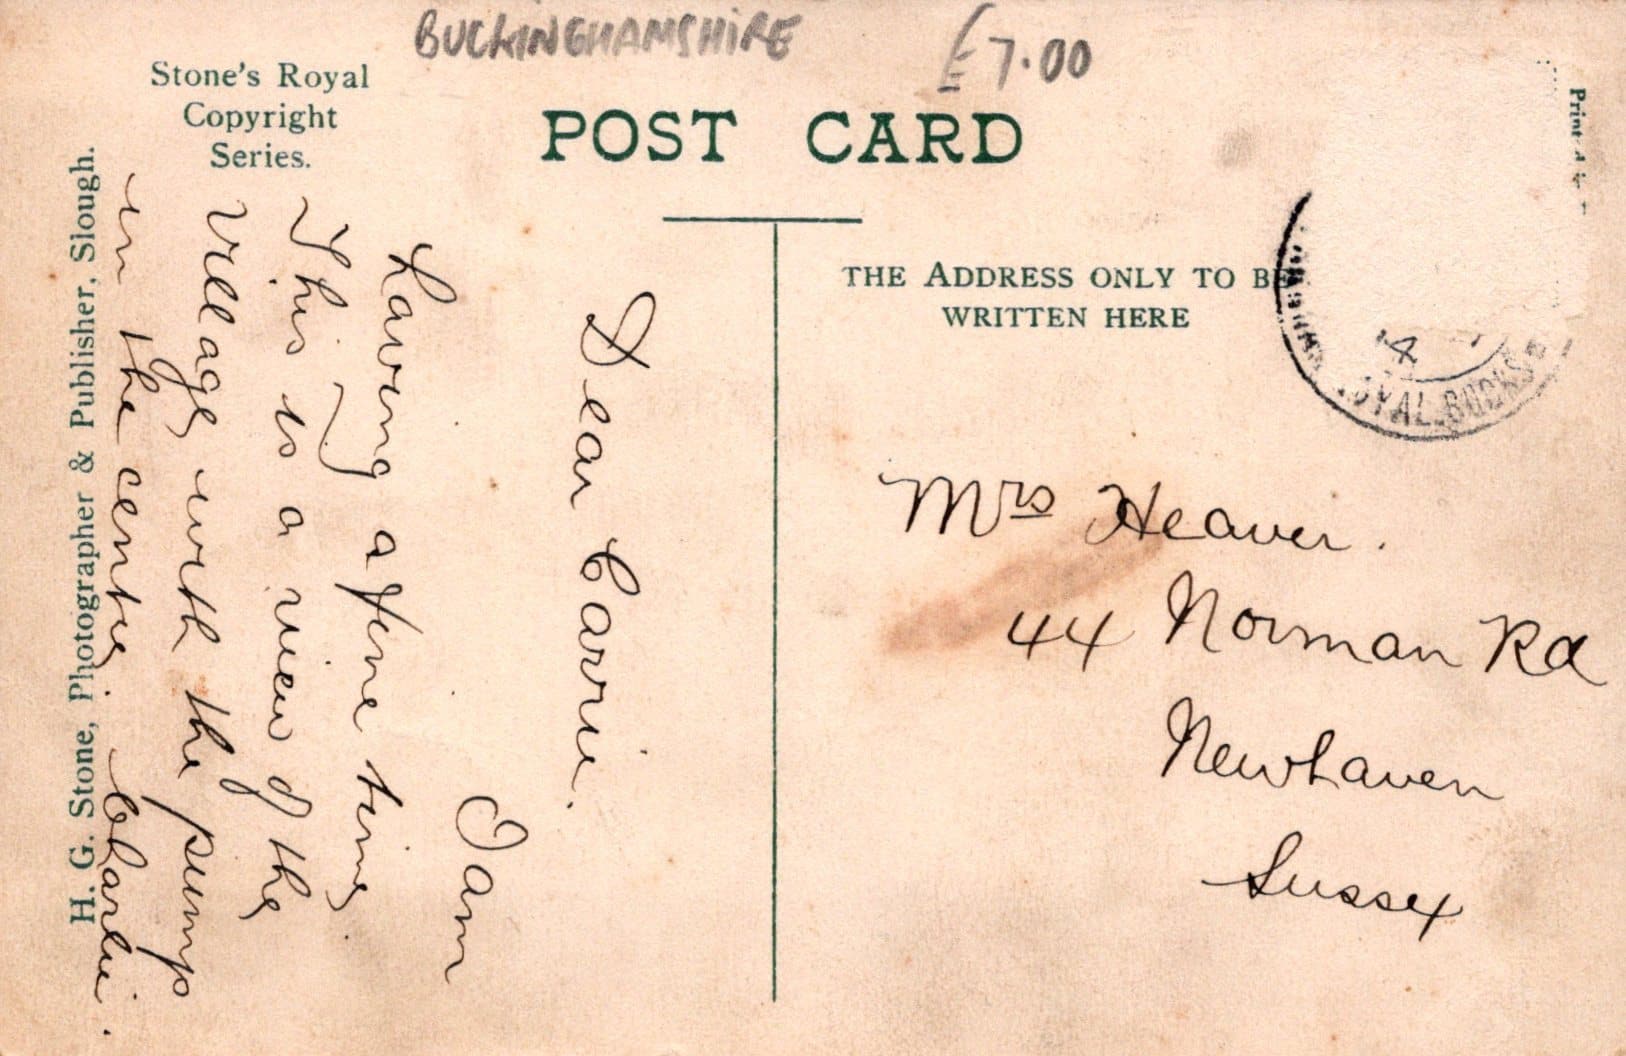 BUCKINGHAMSHIRE £7.00
Stone's Royal
Copyright
Series.
POST CARD
THE ADDRESS ONLY TO BE
WRITTEN HERE
H. G. Stone, Photographer & Publisher, Slough.
Dear Carrie.
I am
having a fine time.
This is a view of the
village with the pump
in the centre. Charlie.
Mrs Heaver.
44 Norman Rd
Newhaven
Sussex
14
ROYAL.BUCKS